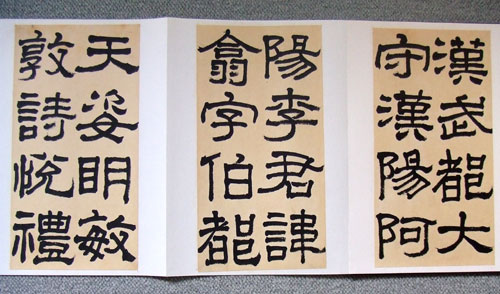 漢武都大
守漢陽阿
陽李君諱
翕字伯都
天姿明敏
敦詩悅禮